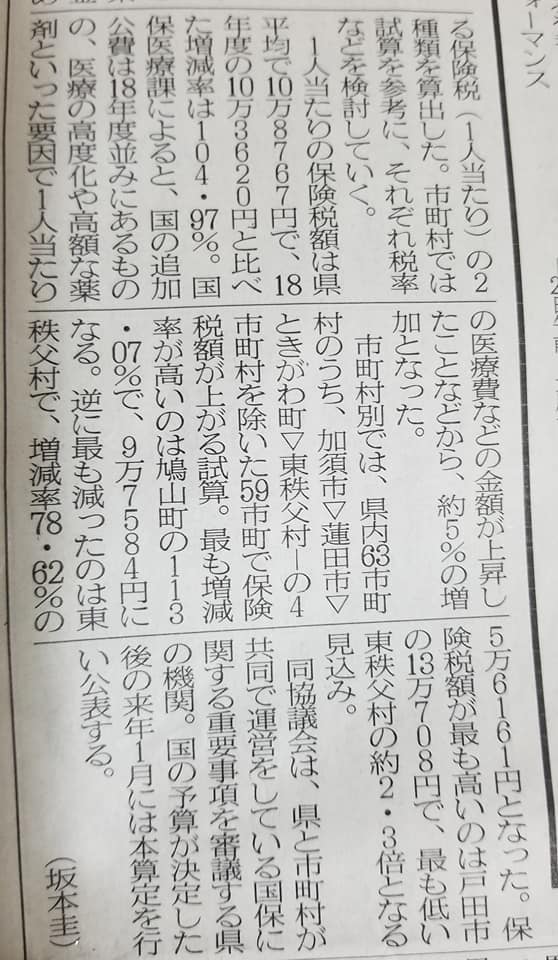 ォーマンス
る保険税（１人当たり）の２
種類を算出した。市町村では
試算を参考に、それぞれ税率
などを検討していく。
１人当たりの保険税額は県
平均で10万８７６７円で、18
年度の10万３６２０円と比べ
た増減率は１０４・97％。国
保医療課によると、国の追加
公費は18年度並みにあるもの
の、医療の高度化や高額な薬
剤といった要因で１人当たり
の医療費などの金額が上昇し
たことなどから、約５％の増
加となった。
市町村別では、県内63市町
村のうち、加須市▽蓮田市▽
ときがわ町▽東秩父村―の４
市町村を除いた59市町で保険
税額が上がる試算。最も増減
率が高いのは鳩山町の１１３
・07％で、９万７５８４円に
なる。逆に最も減ったのは東
秩父村で、増減率78・62％の
５万６１６１円となった。保
険税額が最も高いのは戸田市
の13万７０８円で、最も低い
東秩父村の約２・３倍となる
見込み。
同協議会は、県と市町村が
共同で運営をしている国保に
関する重要事項を審議する県
の機関。国の予算が決定した
後の来年１月には本算定を行
い公表する。
（坂本圭）